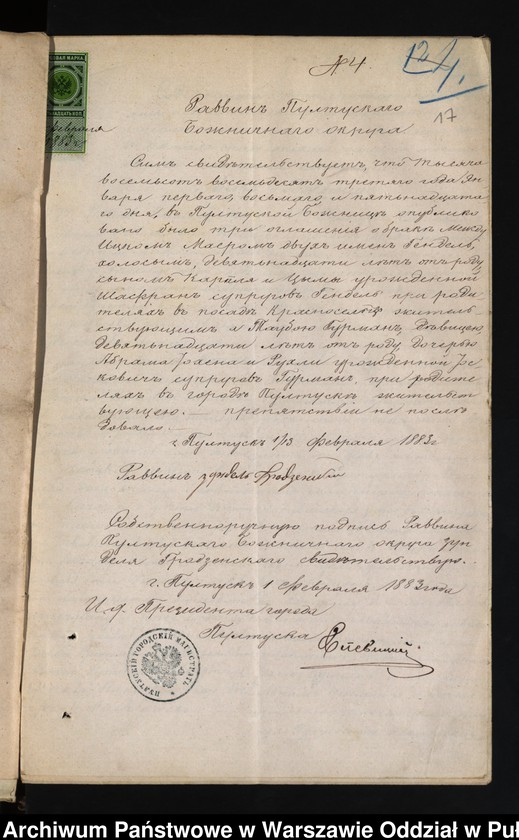 № 4.
12/4.
17
ВАЯ МАРКА.
февраля
1883 г
Раввинъ Пултускаго
Божничнаго округа
Симъ свидѣтельствуетъ, что тысяча
восемьсотъ восемьдесятъ третяго года Ян-
варя перваго, восьмаго и пятьнадцата-
го дня, въ Пултуской Божницѣ опублико
вано было три оглашенія о бракѣ между
Ицкомъ Маеромъ двухъ именъ Гендель,
холосымъ, девятьнадцати лѣтъ отъ роду
сыномъ Карпеля и Цымы урожденной
Шафранъ супруговъ Гендель при роди-
теляхъ въ посадѣ Красносельцѣ житель-
ствующимъ и Таубою Гурманъ, дѣвицею,
девятьнадцати лѣтъ отъ роду дочерью
Абрама и Рухли урожденной Іос-
ковичъ супруговъ Гурманъ, при родите-
ляхъ въ городѣ Пултускѣ жительст
вующею. — препятствій не послѣ
довало. —
г. Пултускъ 1/13 февраля 1883 г
Раввинъ
Собственноручную подпись Раввина
Пултускаго Божничнаго округа Зун
деля Гродзенскаго свидѣтельствую.
г. Пултускъ 1 февраля 1883 года
И. д. Президента города
Пултуска
ПУЛТУСКІЙ ГОРОДСКІЙ МАГИСТРАТЪ
Archiwum Państwowe w Warszawie Oddział w Puł